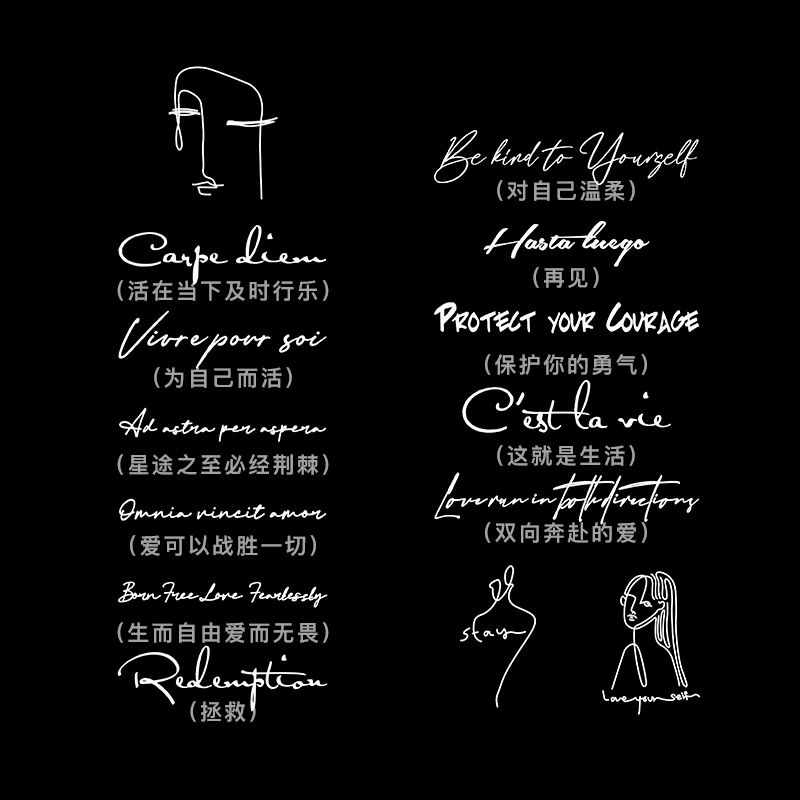 Carpe diem
（活在当下及时行乐）
Vivre pour soi
（为自己而活）
Ad astra per aspera
（星途之至必经荆棘）
Omnia vincit amor
（爱可以战胜一切）
Born Free Love Fearlessly
（生而自由爱而无畏）
Redemption
（拯救）
Be kind to Yourself
（对自己温柔）
Hasta luego
（再见）
PROTECT YOUR COURAGE
（保护你的勇气）
C'est la vie
（这就是生活）
Love run in both directions
（双向奔赴的爱）
stay
Love your self